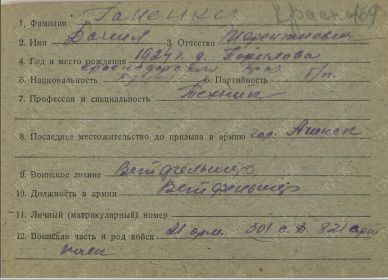 Красно 69
1, Фамилия Гапенко
2. Имя Васил 3. Отчество
4. Год и место рождения 1924 г. д.
Краснодарский край
5. Национальность 6. Партийность б/п.
7. Профессия и специальность Техник
8. Последнее местожительство до призыва в армию гор. Ачинск
9. Воинское звание Ветфельдшер
10. Должность в армии Ветфельдшер
11. Личный (матрикулярный) номер
12. Воинская часть и род войск 21 арм. 301 с.д. 821 арт.
полк